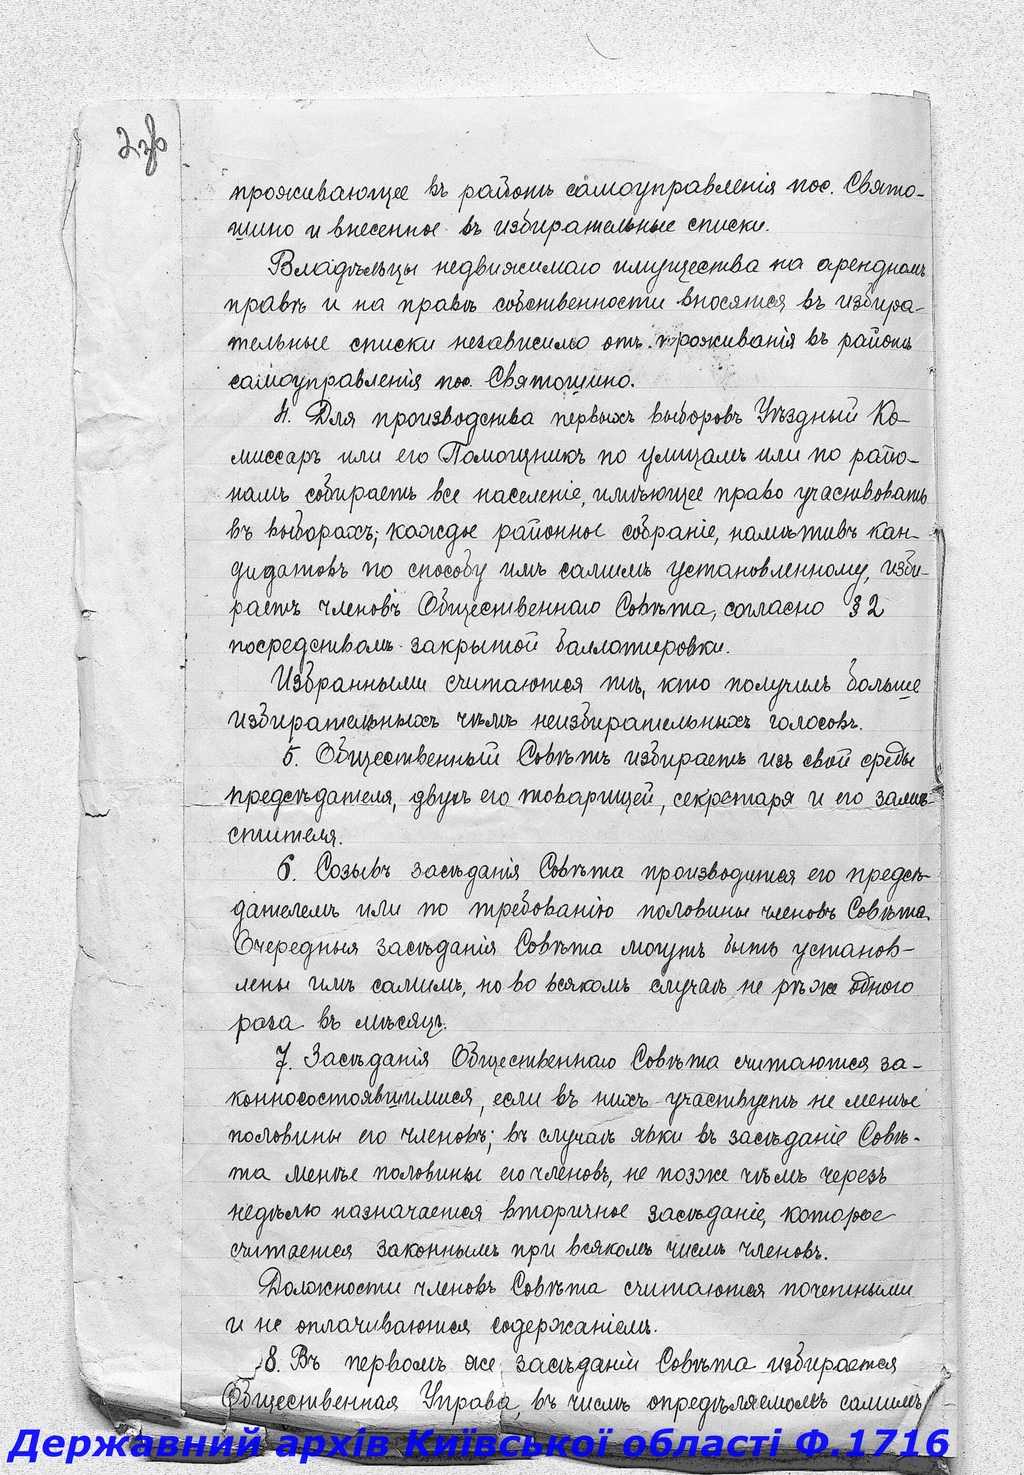 проживающее въ районѣ самоуправленія пос. Свято-
шино и внесенное въ избирательные списки.
Владѣльцы недвижимаго имущества на арендномъ
правѣ и на правѣ собственности вносятся въ избира-
тельные списки независимо отъ проживанія въ районѣ
самоуправленія пос. Святошино.
4. Для производства первыхъ выборовъ Уѣздный Ко-
миссаръ или его Помощникъ по улицамъ или по райо-
намъ собираетъ все населеніе, имѣющее право участвовать
въ выборахъ; каждое районное собраніе, намѣтивъ кан-
дидатовъ по способу имъ самимъ установленному, изби-
раетъ членовъ Общественнаго Совѣта, согласно § 2
посредствомъ закрытой баллотировки.
Избранными считаются тѣ, кто получилъ больше
избирательныхъ чѣмъ неизбирательныхъ голосовъ.
5. Общественный Совѣтъ избираетъ изъ свой среды
предсѣдателя, двухъ его товарищей, секретаря и его замѣ-
стителя.
6. Созывъ засѣданія Совѣта производится его предсѣ-
дателемъ или по требованію половины членовъ Совѣта.
Очередныя засѣданія Совѣта могутъ быть установ-
лены имъ самимъ, но во всякомъ случаѣ не рѣже одного
раза въ мѣсяцъ.
7. Засѣданія Общественнаго Совѣта считаются за-
конносостоявшимися, если въ нихъ участвуетъ не менѣе
половины его членовъ; въ случаѣ явки въ засѣданіе Совѣ-
та менѣе половины его членовъ, не позже чѣмъ черезъ
недѣлю назначается вторичное засѣданіе, которое
считается законнымъ при всякомъ числѣ членовъ.
Должности членовъ Совѣта считаются почетными
и не оплачиваются содержаніемъ.
8. Въ первомъ же засѣданіи Совѣта избирается
Общественная Управа, въ числѣ опредѣляемомъ самимъ
Державний архів Київської області Ф.1716